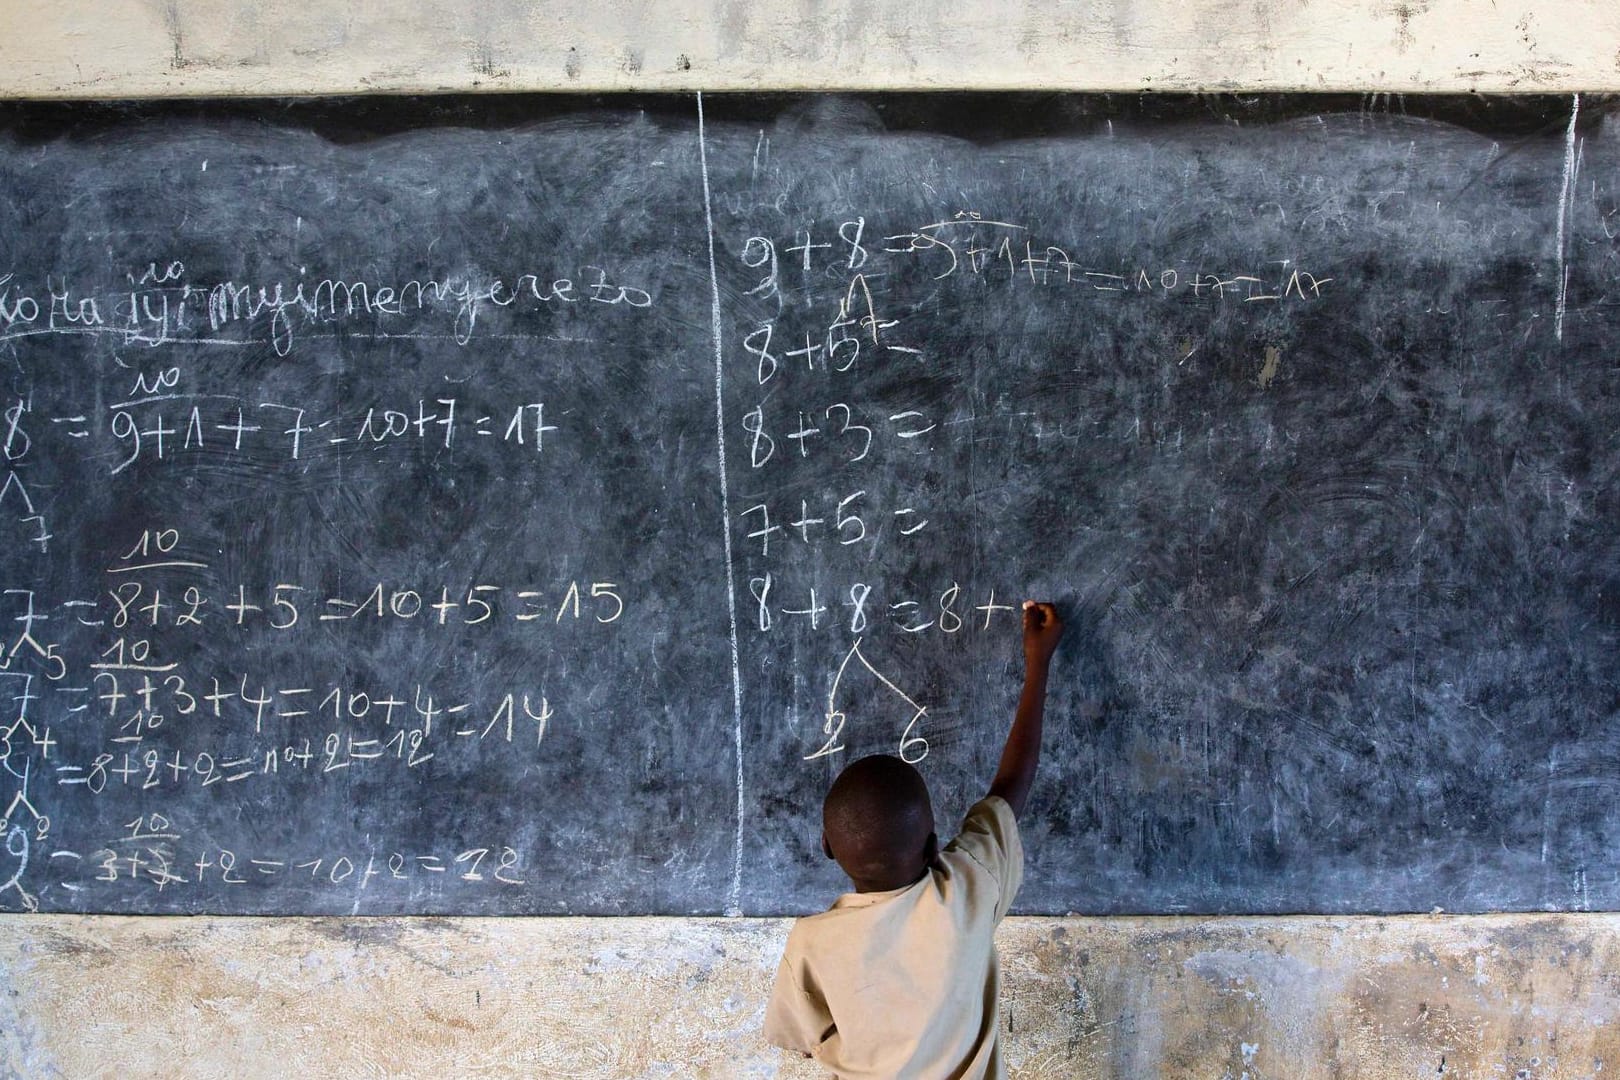 kora iyi myimenyerezo
10
10
8 = 9+1+7=10+7=17
7
10
7=8+2+5=10+5=15
2 5
10
7=7+3+4=10+4=14
3 4
10
4=8+2+2=10+2=12
2 2
10
9= +2=10+2=12
10
9+8=9+1+7=10+7=17
1 7
8+5=
8+3=
7+5=
8+8=8+
2 6